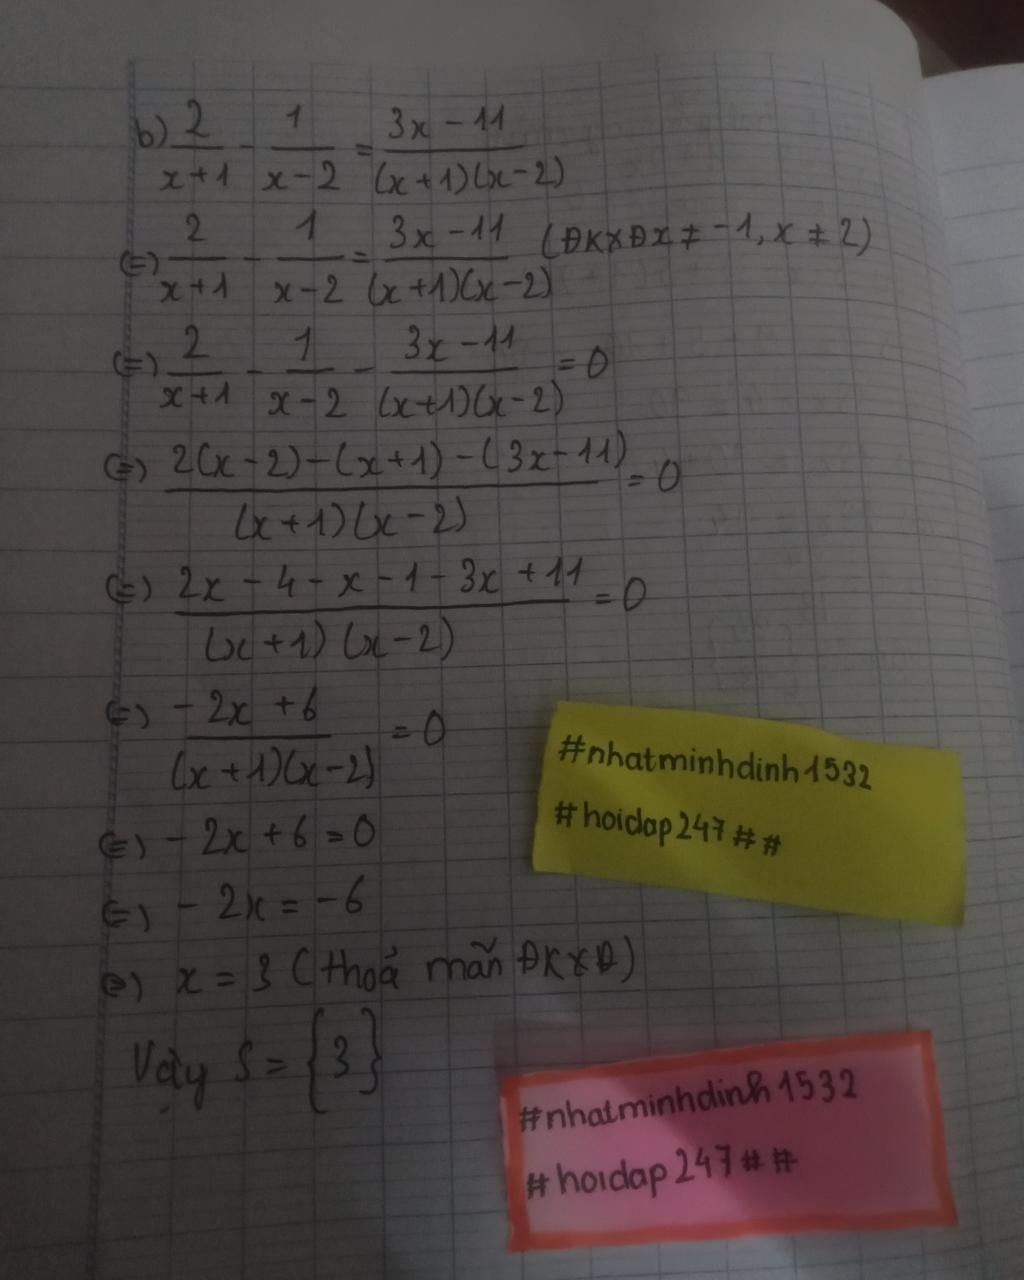 b) 2/(x+1) - 1/(x-2) = (3x-11)/((x+1)(x-2))
(=) 2/(x+1) - 1/(x-2) = (3x-11)/((x+1)(x-2)) (ĐKXĐ x ≠ -1, x ≠ 2)
(=) 2/(x+1) - 1/(x-2) - (3x-11)/((x+1)(x-2)) = 0
(=) (2(x-2)-(x+1)-(3x-11))/((x+1)(x-2)) = 0
(=) (2x-4-x-1-3x+11)/((x+1)(x-2)) = 0
(=) (-2x+6)/((x+1)(x-2)) = 0
(=) -2x+6=0
(=) -2x = -6
(=) x = 3 (thoả mãn ĐKXĐ)
Vậy S = {3}
#nhatminhdinh1532
#hoidap247##
#nhatminhdinh1532
#hoidap247##